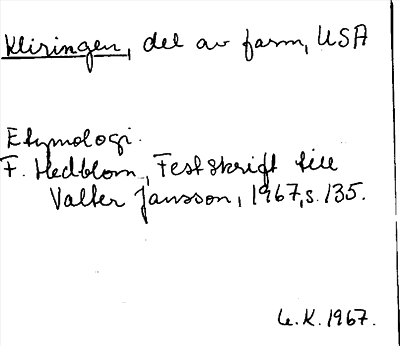 Kliringen, del av farm, USA
Etymologi.
F. Hedblom, Festskrift till
Valter Jansson, 1967, s. 135.
U.K. 1967.